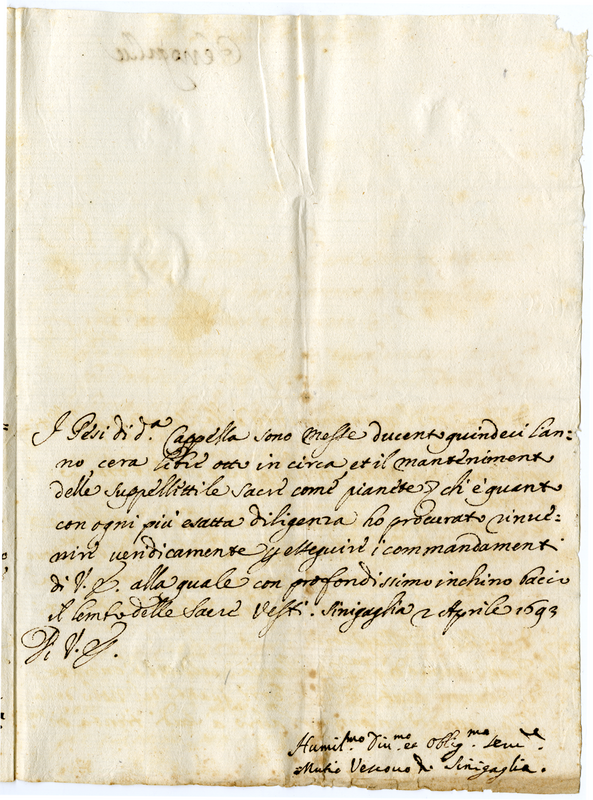 I Pesi di d.ª Cappella sono Messe ducento quindeci l'an=
no, cera libre otto in circa, et il mantenimento
delle suppellittile sacre come pianete, ch'è quanto
con ogni più esatta diligenza ho procurato rinue=
nire veridicamente esseguire i commandamenti
di V. S. alla quale con profondissimo inchino bacio
il lembo delle Sacre Vesti. Sinigaglia 2 Aprile 1693
Di V. S.
Humil.mo Diu.mo et Oblig.mo seru.e
Mutio Vescovo di Sinigaglia.